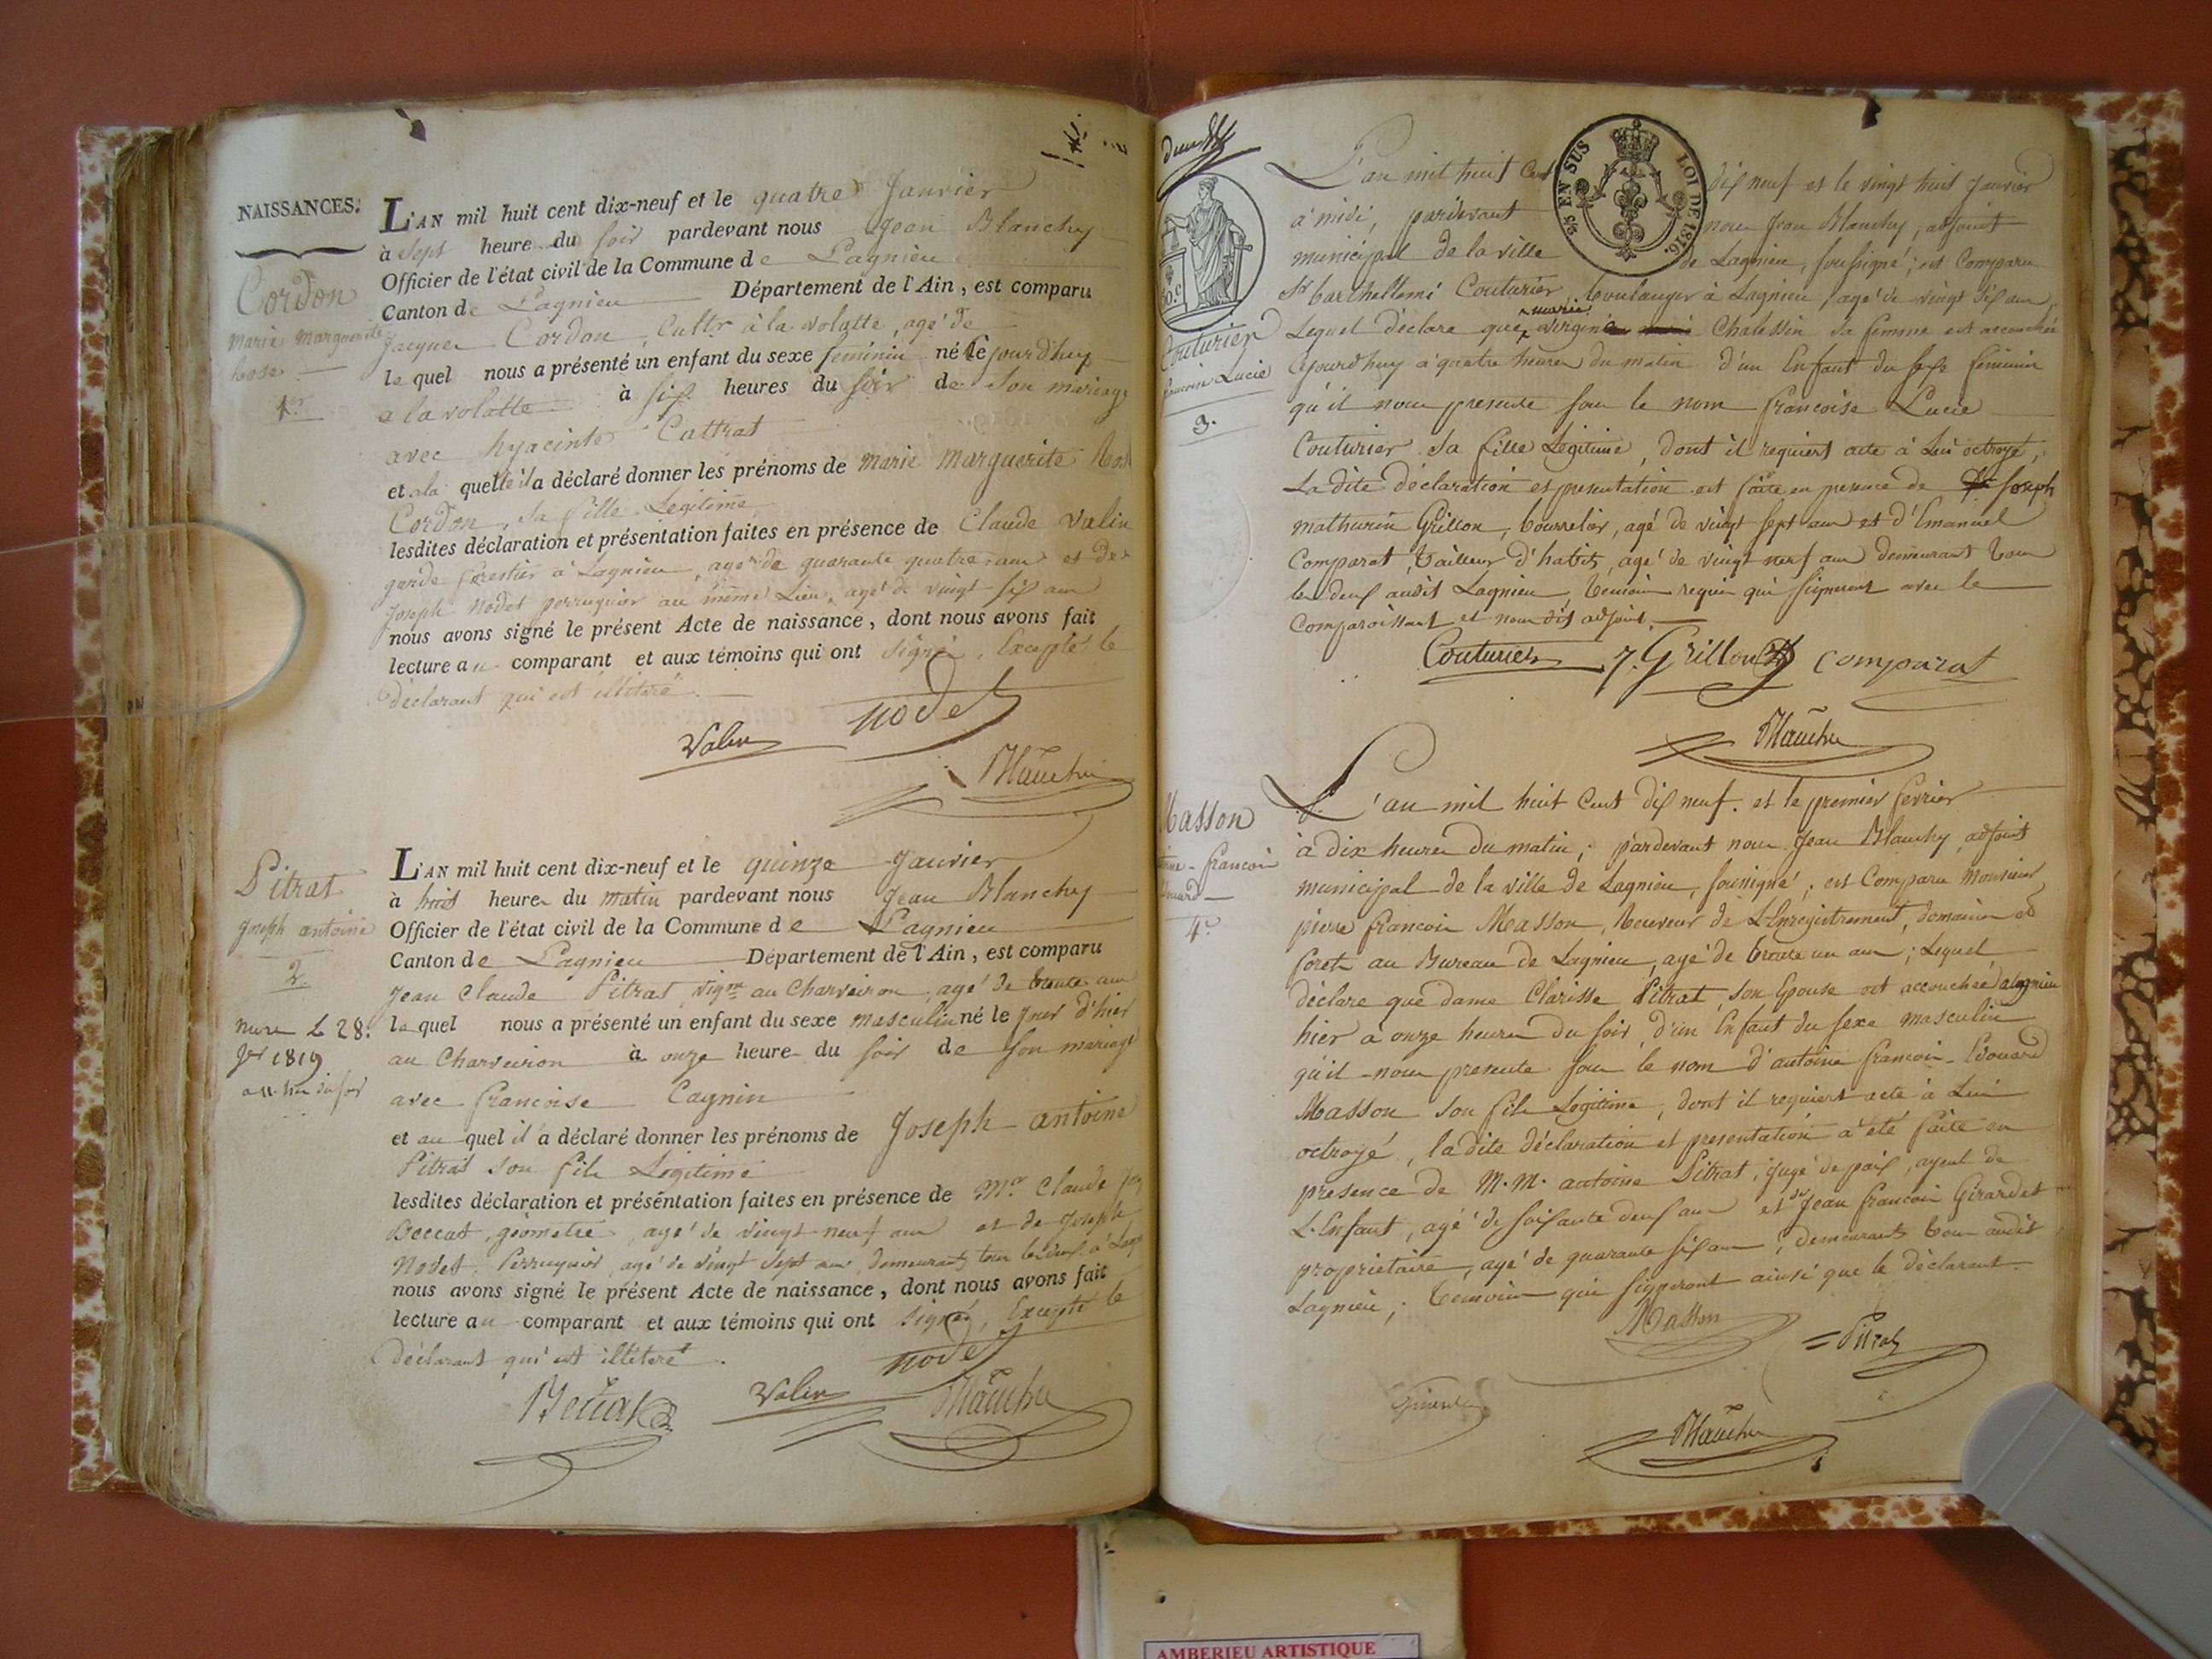 NAISSANCES.
Cordon
marie marguerite
Rose
1er
L'AN mil huit cent dix-neuf et le quatre Janvier
à sept heure du soir pardevant nous Jean Blanchy
Officier de l'état civil de la Commune de Lagnieu
Canton de Lagnieu Département de l'Ain, est comparu
Jacques Cordon, Cultr à la volatte, agé de
le quel nous a présenté un enfant du sexe feminin né le jourd'huy
a la volatte à six heures du soir de son mariage
avec hyacinte Cattrat
et a la quelle il a déclaré donner les prénoms de marie marguerite Ros
Cordon, sa fille Legitime
lesdites déclaration et présentation faites en présence de Claude Valin
garde forestier à Lagnieu, agé de quarante quatre ans et de
Joseph Nodet perruquier au même Lieu, agé de vingt six ans
nous avons signé le présent Acte de naissance, dont nous avons fait
lecture au comparant et aux témoins qui ont signé, Excepté le
déclarant qui est illiteré.
Valin nodet
Blanchy
Pitrat
Joseph antoine
2.
L'AN mil huit cent dix-neuf et le quinze Janvier
à huit heures du matin pardevant nous Jean Blanchy
Officier de l'état civil de la Commune de Lagnieu
Canton de Lagnieu Département de l'Ain, est comparu
Jean Claude Pitrat, vign au Charveiron, agé de trente ans
le quel nous a présenté un enfant du sexe masculin né le jour d'hier
au Charveiron à onze heures du soir de son mariage
avec francoise Cagnin
et au quel il a déclaré donner les prénoms de Joseph antoine
Pitrat son fils Légitime
lesdites déclaration et présentation faites en présence de Mr Claude
Beccat, géometre, agé de vingt neuf ans et de Joseph
Nodet, Perruquier, agé de vingt sept ans, demeurants tous les deux à Lagn
nous avons signé le présent Acte de naissance, dont nous avons fait
lecture au comparant et aux témoins qui ont signé, Excepté le
déclarant qui est illiteré.
nodet
Beccat Valin Blanchy
28.
1819
EN SUS LOI DE 1816.
Couturier
francoise Lucie
3.
L'an mil huit Cent dix neuf et le vingt huit Janvier
à midi, pardevant nous Jean Blanchy, adjoint
municipal de la ville de Lagnieu, soussigné; est Comparu
Sr barthellemi Couturier, boulanger à Lagnieu, agé de vingt six ans,
Lequel déclare que marie virginie Chalessin sa femme est accouchée
ajourd'huy a quatre heures du matin d'un Enfant du sexe féminin
qu'il nous presente sous le nom francoise Lucie
Couturier sa fille Légitime, dont il requiert acte à Lui octroyé,
La dite déclaration et presentation est faite en presence de Joseph
mathurin Grillon, bourrelier, agé de vingt sept ans et d'Emanuel
Comparat, tailleur d'habits, agé de vingt neuf ans demeurant tous
les deux audit Lagnieu, témoins requis qui signeront avec le
Comparoissant et nous dit adjoint.
Couturier J. Grillon comparat
Blanchy
Masson
francois
4e
L'an mil huit Cent dix neuf. et le premier fevrier
à dix heures du matin; pardevant nous Jean Blanchy, adjoint
municipal de la ville de Lagnieu, soussigné; est Comparu Monsieur
pierre francois Masson, Receveur de L'Enregistrement, domaines et
forets au Bureau de Lagnieu, agé de trente un ans; Lequel
déclare que dame Clarisse Pitrat, son Epouse est accouchée a Lagnieu
hier à onze heures du soir, d'un Enfant du sexe masculin
qu'il nous presente sous le nom d'antoine francois Edouard
Masson son fils Légitime, dont il requiert acte à Lui
octroyé, la dite déclaration et presentation a été faite en
presence de M.M. antoine Pitrat, juge de paix, ayeul de
L'Enfant, agé de soixante deux ans et de Jean francois Girardet
proprietaire, agé de quarante six ans, demeurants tous audit
Lagnieu; témoins qui signeront ainsi que le déclarant.
Masson Pitrat
Girardet
Blanchy
AMBERIEU ARTISTIQUE